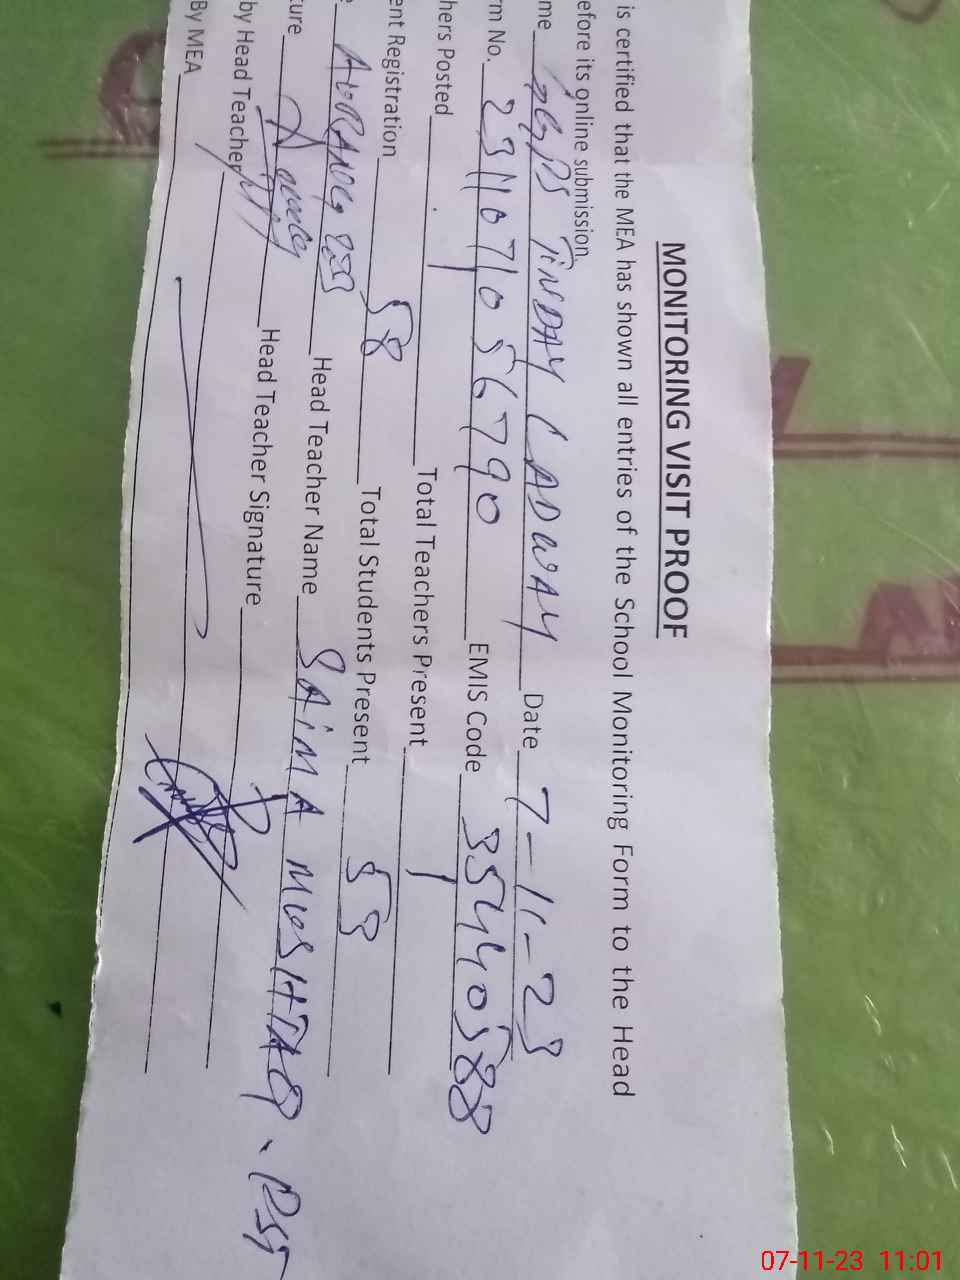 MONITORING VISIT PROOF
is certified that the MEA has shown all entries of the School Monitoring Form to the Head
efore its online submission.
me GGPS TINDAY CADWAY Date 7-11-23
rm No. 2311071056790 EMIS Code 35440588
hers Posted 1 Total Teachers Present 1
ent Registration 58 Total Students Present 53
e Head Teacher Name SAIMA MUSHTAQ. PST
ture Head Teacher Signature
by Head Teacher
By MEA
07-11-23 11:01